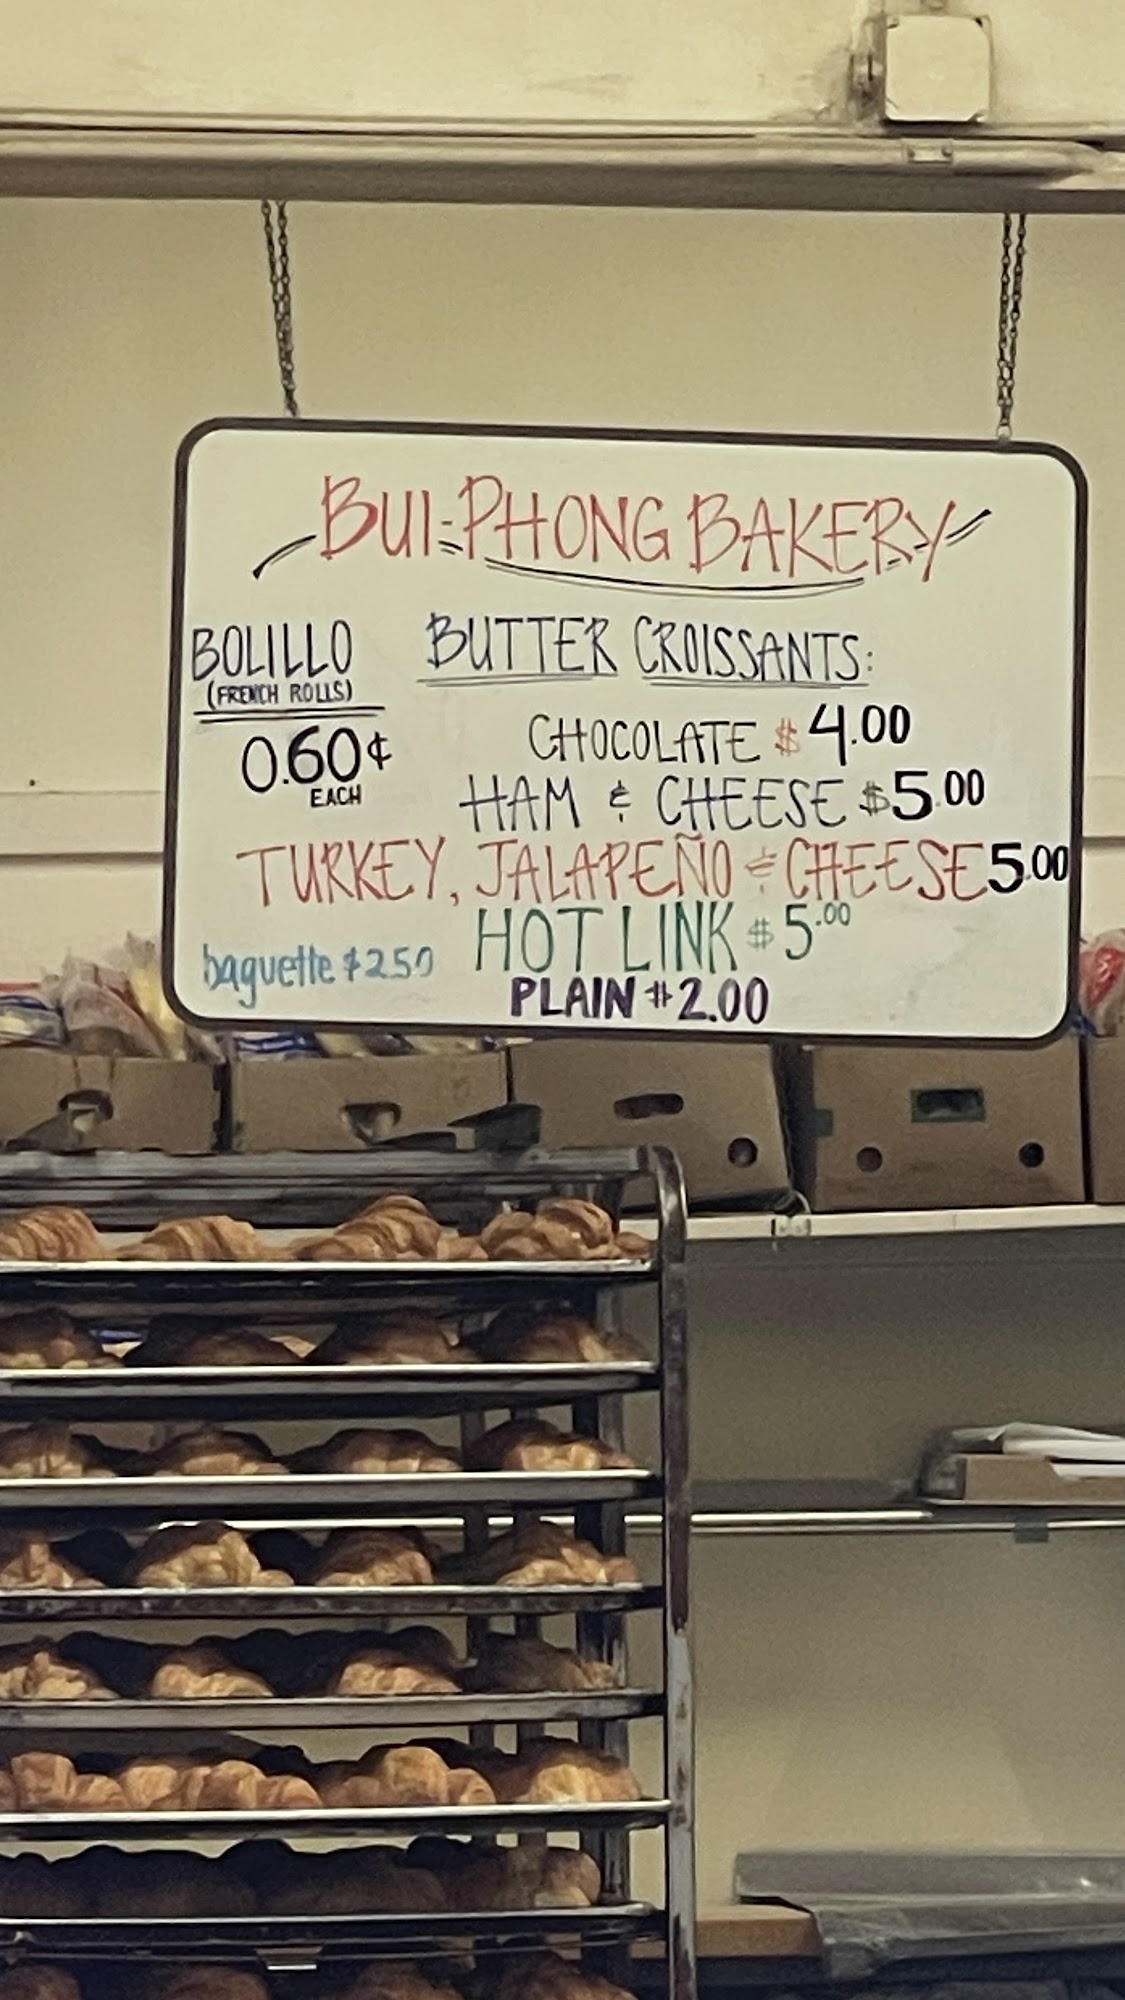 BUI-PHONG BAKERY
BOLILLO
(FRENCH ROLLS)
0.60¢
EACH
BUTTER CROISSANTS:
CHOCOLATE $4.00
HAM & CHEESE $5.00
TURKEY, JALAPEÑO & CHEESE 5.00
HOT LINK $5.00
baguette $2.50
PLAIN $2.00